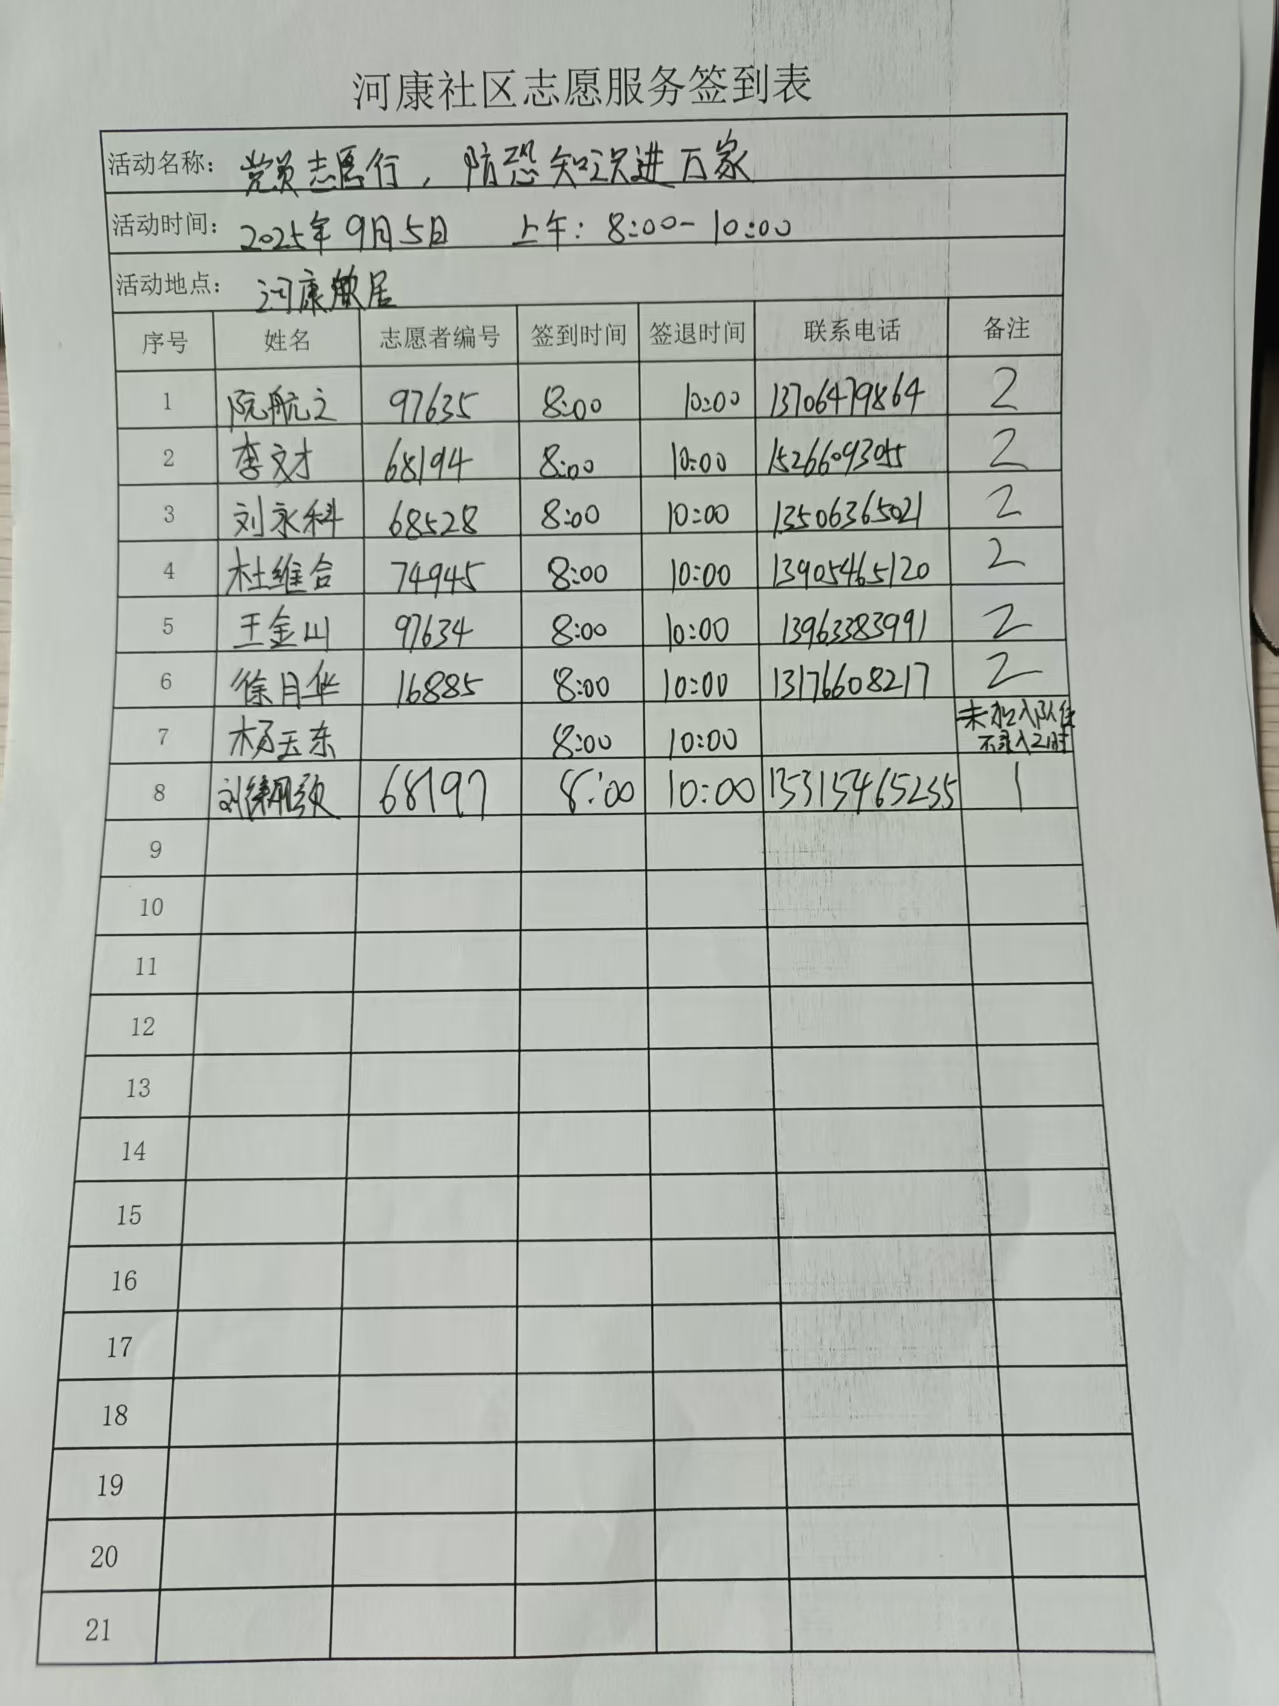 河康社区志愿服务签到表
活动名称： 党员志愿行，防恐知识进万家
活动时间： 2025年9月5日 上午：8:00-10:00
活动地点： 河康馨居
序号 姓名 志愿者编号 签到时间 签退时间 联系电话 备注
1 阮航之 97635 8:00 10:00 13706479864 2
2 李文才 68194 8:00 10:00 15266093015 2
3 刘永科 68528 8:00 10:00 13506365021 2
4 杜维合 74945 8:00 10:00 13905465120 2
5 王金山 97634 8:00 10:00 13963383991 2
6 徐月华 16885 8:00 10:00 13176608217 2
7 杨玉东 8:00 10:00 未加入队伍
不录入工时
8 68197 8:00 10:00 1
9
10
11
12
13
14
15
16
17
18
19
20
21